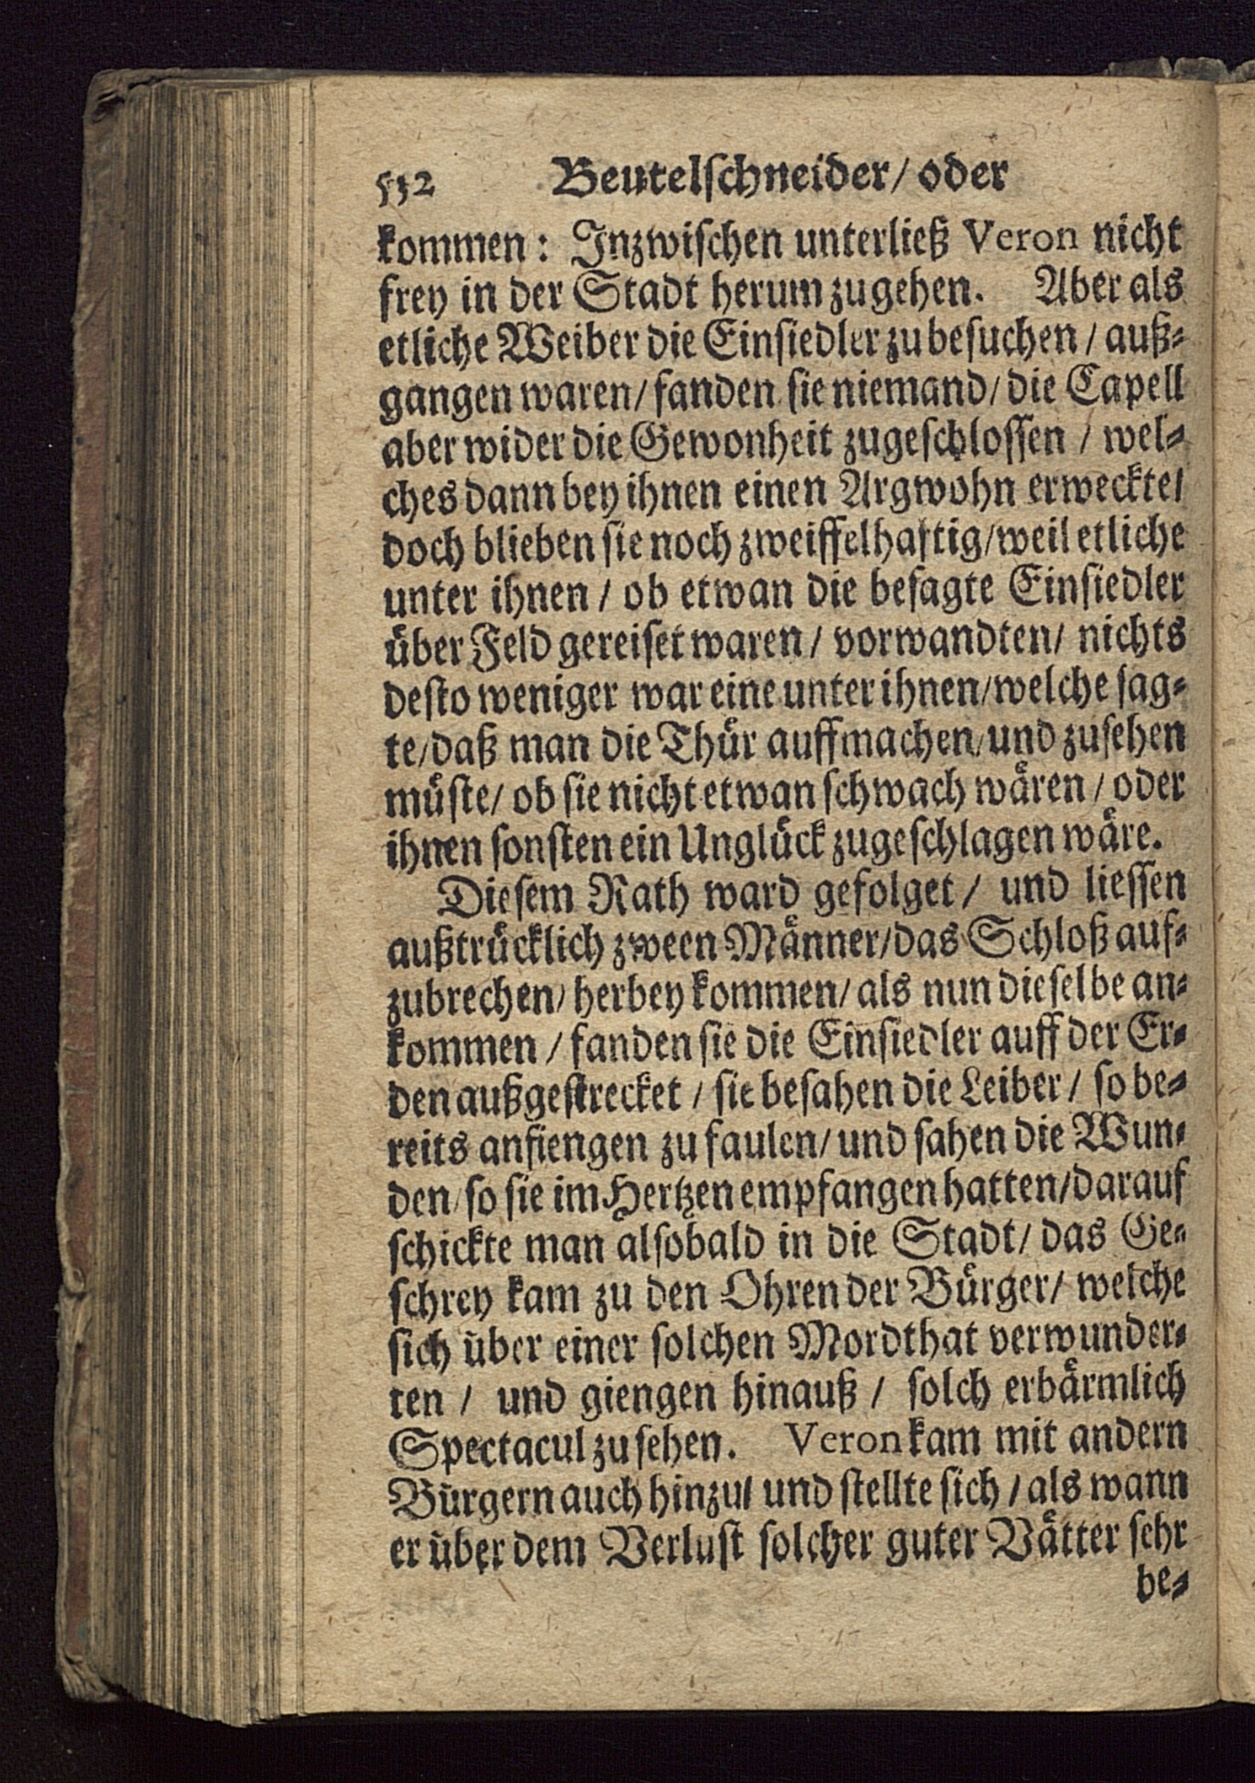 532 Beutelschneider/ oder
kommen: Inzwischen unterließ Veron nicht
frey in der Stadt herum zugehen. Aber als
etliche Weiber die Einsiedler zu besuchen / auß-
gangen waren/ fanden sie niemand/ die Capell
aber wider die Gewonheit zugeschlossen / wel-
ches dann bey ihnen einen Argwohn erweckte/
doch blieben sie noch zweiffelhaftig/weil etliche
unter ihnen / ob etwan die besagte Einsiedler
über Feld gereiset waren/ vorwandten/ nichts
desto weniger war eine unter ihnen/welche sag-
te/daß man die Thür auffmachen/und zusehen
müste/ ob sie nicht etwan schwach wären / oder
ihnen sonsten ein Unglück zugeschlagen wäre.
Diesem Rath ward gefolget/ und liessen
außtrücklich zween Männer/das Schloß auf-
zubrechen/ herbey kommen/ als nun dieselbe an-
kommen / fanden sie die Einsiedler auff der Er-
den außgestrecket / sie besahen die Leiber/ so be-
reits anfiengen zu faulen/ und sahen die Wun-
den/so sie im Hertzen empfangen hatten/darauf
schickte man alsobald in die Stadt/ das Ge-
schrey kam zu den Ohren der Bürger/ welche
sich über einer solchen Mordthat verwunder-
ten / und giengen hinauß / solch erbärmlich
Spectacul zu sehen. Veron kam mit andern
Bürgern auch hinzu/ und stellte sich / als wann
er über dem Verlust solcher guter Vätter sehr
be-